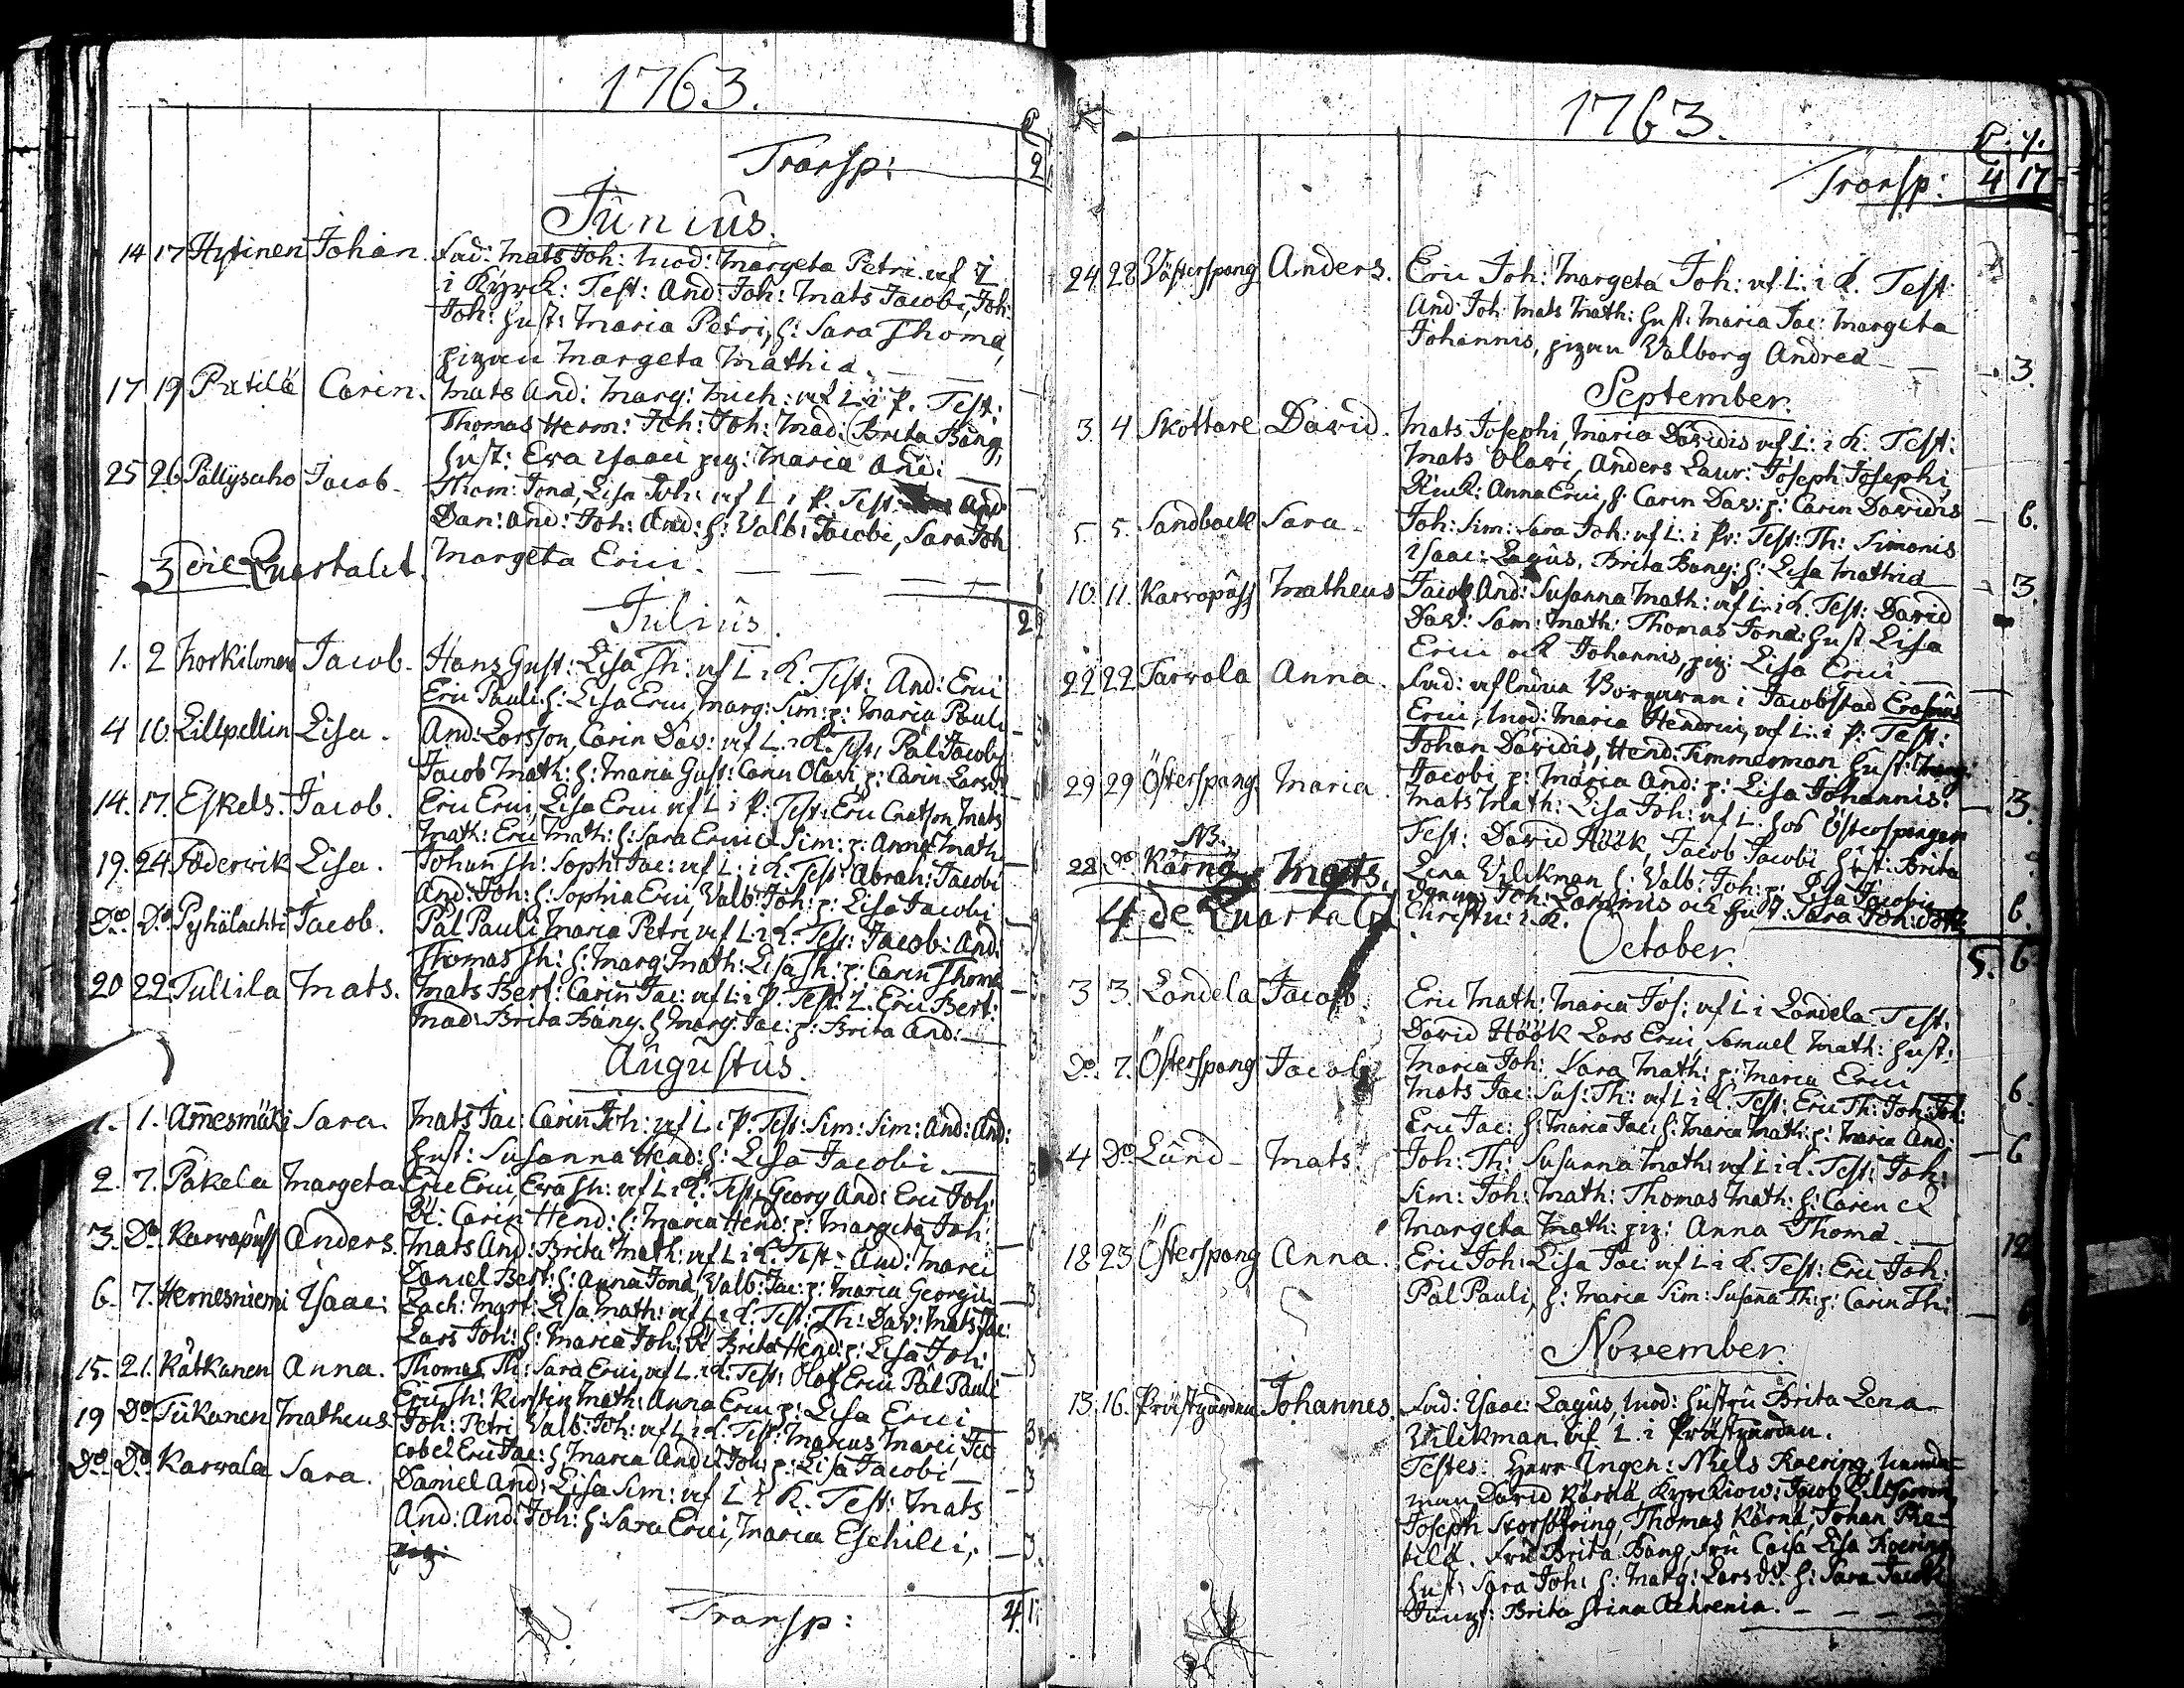 1763.
Transp: 2
Junius.
14 17 Hytinen Johan. Fad: Mats Joh: Mod: Margeta Petri uf L
i Kyrck: Test: And: Joh: Mats Jacobi, Joh:
Joh: Hust: Maria Petri, H: Sara Thomæ,
pigan Margeta Mathiæ.
17 19 Carin. Mats And: Marg: Mich: uf L: i P. Test:
Thomas Herm: Joh: Joh: Mad: Brita Bång,
Hust: Eva Isaaci pig: Maria And:
25 26 Pållysaho Jacob. Thom: Jonæ, Lisa Joh: uf L i P. Test: And
Dan: And: Joh: And: H: Valb: Jacobi, Sara Joh
Margeta Erici.
3 die Quartalet.
Julius. 2
1. 2 Jacob. Hans Gust: Lisa Th: uf L i K. Test: And: Erici
Eric Pauli H: Lisa Erici, Marg: Sim: p: Maria Pauli
4 10. Lillpellin Lisa. And: Larsson, Carin Dav: uf L. i K. Test: Pål Jacobi
Jacob Math: H: Maria Gust: Carin Olavi p: Carin Larsd:
14. 17. Eskels. Jacob. Eric Erici, Lisa Erici uf L i P: Test: Eric Mats
Math: Eric Math: H: Sara Erici & Sim: p: Anna Math
19. 24 Söderwik Lisa. Johan Th: Soph: Jac: uf L: i K. Test: Abrah: Jacobi
And: Joh: H: Sophia Erici, Valb: Joh: p: Lisa Jacobi
Do. Do. Pyhälachti Jacob. Pål Pauli, Maria Petri uf L i K. Test: Jacob: And:
Thomas Th: H: Marg: Math: Lisa Th: p: Carin Thomæ
20 22 Tullila Mats. Mats Bert: Carin Jac: uf L: i P. Test: L. Eric Bert:
Mad: Brita Bång. H: Marg: Jac: p: Brita And:
Augustus.
1. 1. Amesmäki Sara. Mats Jac: Carin Joh: uf L i P. Test: Sim: Sim: And: And:
Hust: Susanna Hend: H: Lisa Jacobi 3
2. 7. Påkela Margeta. Eric Erici, Eva Th: uf L i K. Test: Georg And: Eric Joh:
Carin Hend: H: Maria Hend: p: Margeta Joh:
3. Do. Karvapuss Anders. Mats And: Brita Math: uf L i K. Test: And: Marci
Daniel Bert: H: Anna Jonæ, Valb: Jac: p: Maria Georgii 3
6. 7. Hernesniemi Isaac: Zach: Mart: Lisa Math: uf L i K. Test: Th: Dav: Mats Jac:
Lars Joh: H: Maria Joh: Brita Hend: p: Lisa Joh: 3
15. 21. Kätkänen Anna. Thomas Th: Sara Erici, uf L. i K. Test: Olof Erici Pål Pauli
Eric Th: Kirstin Math: Anna Erici p: Lisa Erici
19 Do. Tiikanen Matheus. Joh: Petri, Valb: Joh: uf L i K. Test: Marcus Marci, Ja
cob & Eric Jac: H: Maria And: & Joh: p: Lisa Jacobi 3
Do. Do. Karvala Sara. Daniel And: Lisa Sim: uf L i K. Test: Mats
And: And: Joh: H: Sara Erici, Maria Eschilli, 3.
pig:
Transp: 4. 17
1763.
Transp: 4 17
24 28 Västerspang Anders. Eric Joh: Margeta Joh: uf L: i K. Test
And: Joh: Mats Math: Hust: Maria Jac: Margeta
Johannis, pigan Valborg Andreæ 3.
September.
3. 4 Skottare David. Mats Josephi, Maria Davidis uf L: i K. Test:
Mats Olavi, Anders Laur: Joseph Josephi,
Anna Erici, H: Carin Dav: p: Carin Davidis 6.
5. 5. Sandback Sara. Joh: Sim: Sara Joh: uf L: i Test: Th: Simonis
Isaac: Lagus, Brita Bang: H: Lisa Mathiæ 3.
10. 11. Karvapuss Matheus Jacob And: Susanna Math: uf L i K. Test: David
Dav: Sam: Math: Thomas Jonæ: Hust Lisa
Erici och Johannis, pig: Lisa Erici
22 22 Tarvola Anna. Fad: Borgaren i Jacobstad Erasmus
Erici, Mod: Maria Hendrici, uf L: i P: Test:
Johan Davidis, Hend: Timmerman Hust:
Jacobi p: Maria And: p: Lisa Johannis: 3.
29 29 Österspang Maria. Mats Math: Lisa Joh: uf L. hos Österspangen
Test: David Höök, Jacob Jacobi Hust: Brita
Lena Vilikman H: Valb: Joh: p: Lisa Jacobi 6.
NB.
28 Do Kärnä Mats. Joh: och Hust: Sara Joh:
Christn: i K.
4 de Quartalet
October. 5. 6
3 3. Londela Jacob Eric Math: Maria Jos: uf L i Londela. Test:
David Höök Lars Erici Samuel Math: Hust:
Maria Joh: Vara Math: p: Maria Erici 6.
Do. 7. Österspang Jacob Mats Jac: Sus: Th: uf L i K. Test: Eric Th: Joh: Joh:
Eric Jac: H: Maria Jac: H: Maria Math: p: Maria And: 6
4 Do. Lund Mats. Joh: Th: Susanna Math: uf L i K. Test: Joh:
Sim: Joh: Math: Thomas Math: H: Caren &
Margeta Math: pig: Anna Thomæ. 12
18 23 Österspang Anna. Eric Joh: Lisa Jac: uf L i K. Test: Eric Joh:
Pål Pauli, H: Maria Sim: Susanna Th: p: Carin Th: 6
November.
13. 16. Prästgården Johannes. Fad: Isaac: Lagus, Mod: Hustru Brita Lena
Vilikman uf L. i Prästgården.
Testes: Herr Ungen: Niels Roering,
man David Kärnä,
Joseph Storsöfring, Thomas Kärnä, Johan Pha-
tilä. Fru Brita Bang, Fru Caisa Lisa Roering
Hust: Sara Joh: H: Marg: Larsdr. H: Sara Jacobi
Jungf: Brita Stina Achrenia.